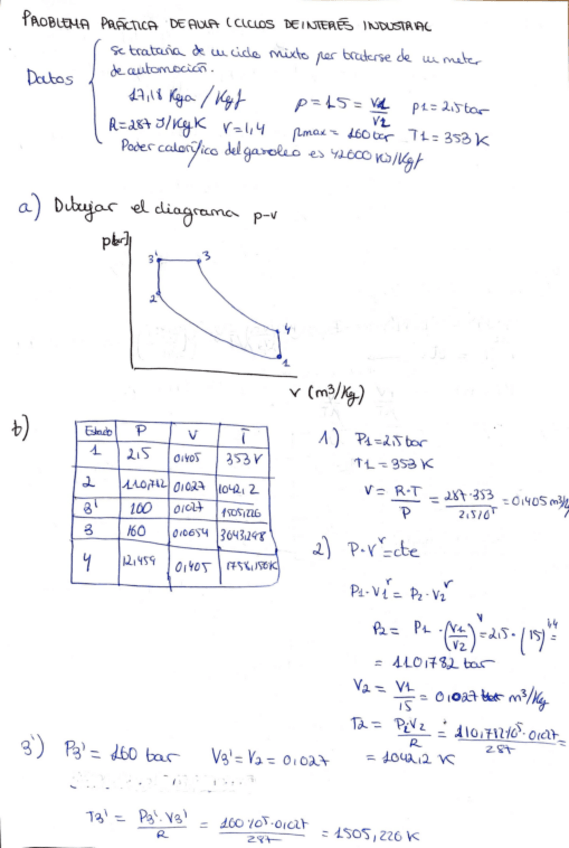 PROBLEMA PRÁCTICA DE AULA (CICLOS DE INTERÉS INDUSTRIAL
Datos
se trataría de un ciclo mixto por tratarse de un motor
de automoción.
17,18 Kga/Kgf ρ=15=V1/V2 p1=2,5bar
R=287 J/KgK γ=1,4 pmax=160bar T1=353K
Poder calorífico del gasoleo es 42600 KJ/Kgf
a) Dibujar el diagrama p-v
p[bar]
3' 3
2
4
1
V (m3/Kg)
b)
Estado P V T
1 2,5 0,405 353K
2 110,782 0,027 1042,2
3' 100 0,027 1505,226
3 160 0,0654 3643,298
4 12,459 0,405 1758,150K
1) P1=2,5bar
T1=353K
V = R·T/P = 287·353/2,5·10^5 = 0,405 m3/
2) P·V^γ=cte
P1·V1^γ = P2·V2^γ
P2 = P1·(V1/V2)^γ = 2,5·(15)^1,4 =
= 110,782 bar
V2 = V1/15 = 0,027 m3/Kg
T2 = P2V2/R = 110,782·10^5·0,027/287 =
= 1042,2 K
3') P3' = 160 bar V3' = V2 = 0,027
T3' = P3'·V3'/R = 160·10^5·0,027/287 = 1505,226 K